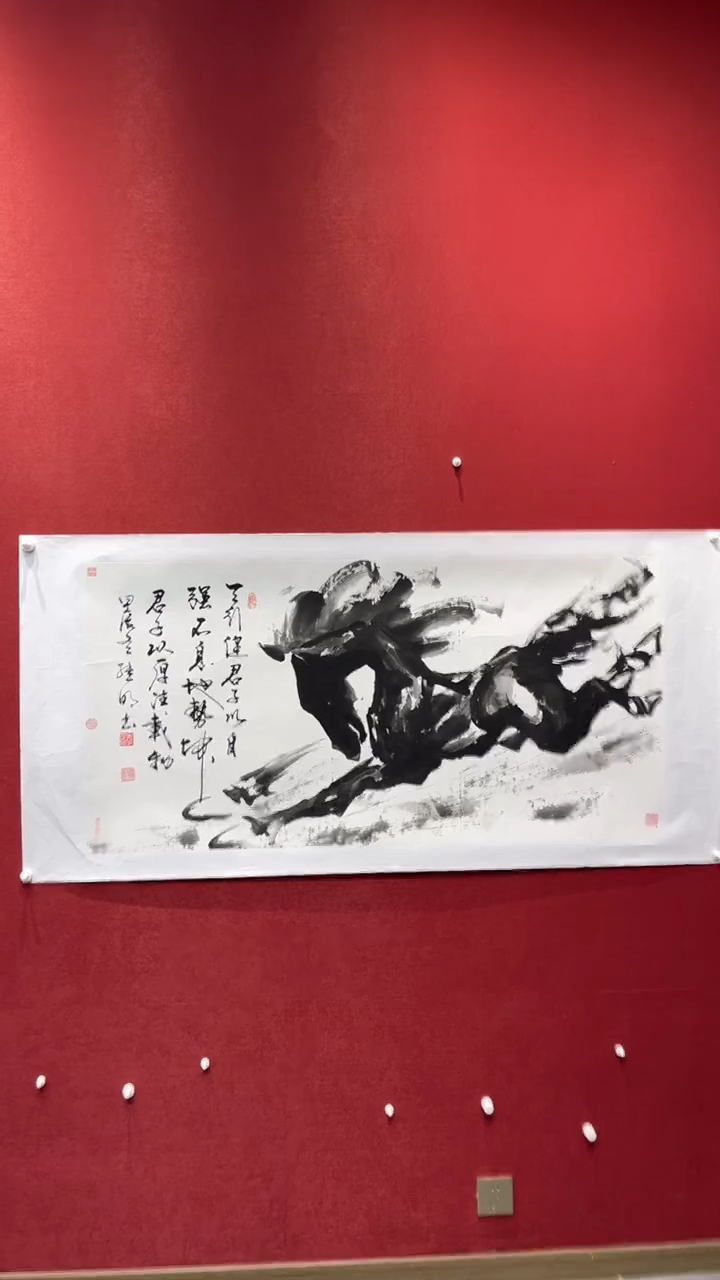 天行健君子以自
强不息地势坤
君子以厚德载物
甲辰
明书